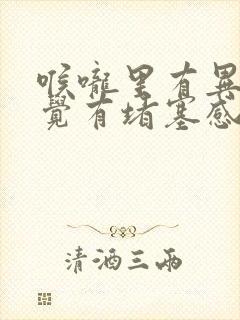 喉嚨里有異
覺有堵塞感
清酒三兩